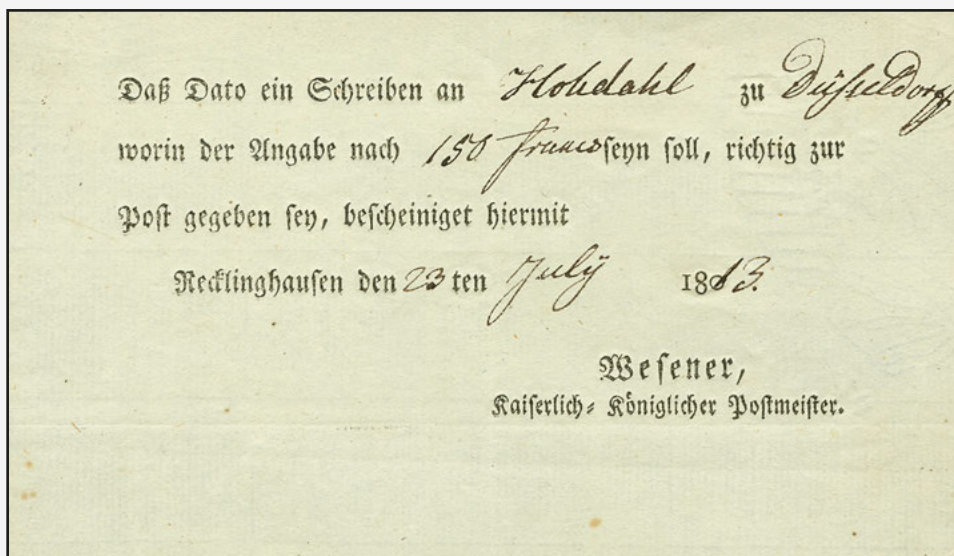 Daß Dato ein Schreiben an Hohdahl zu Düsseldorf
worin der Angabe nach 150 francs seyn soll, richtig zur
Post gegeben sey, bescheiniget hiermit
Recklinghausen den 23 ten July 1813.
Wesener,
Kaiserlich-Königlicher Postmeister.